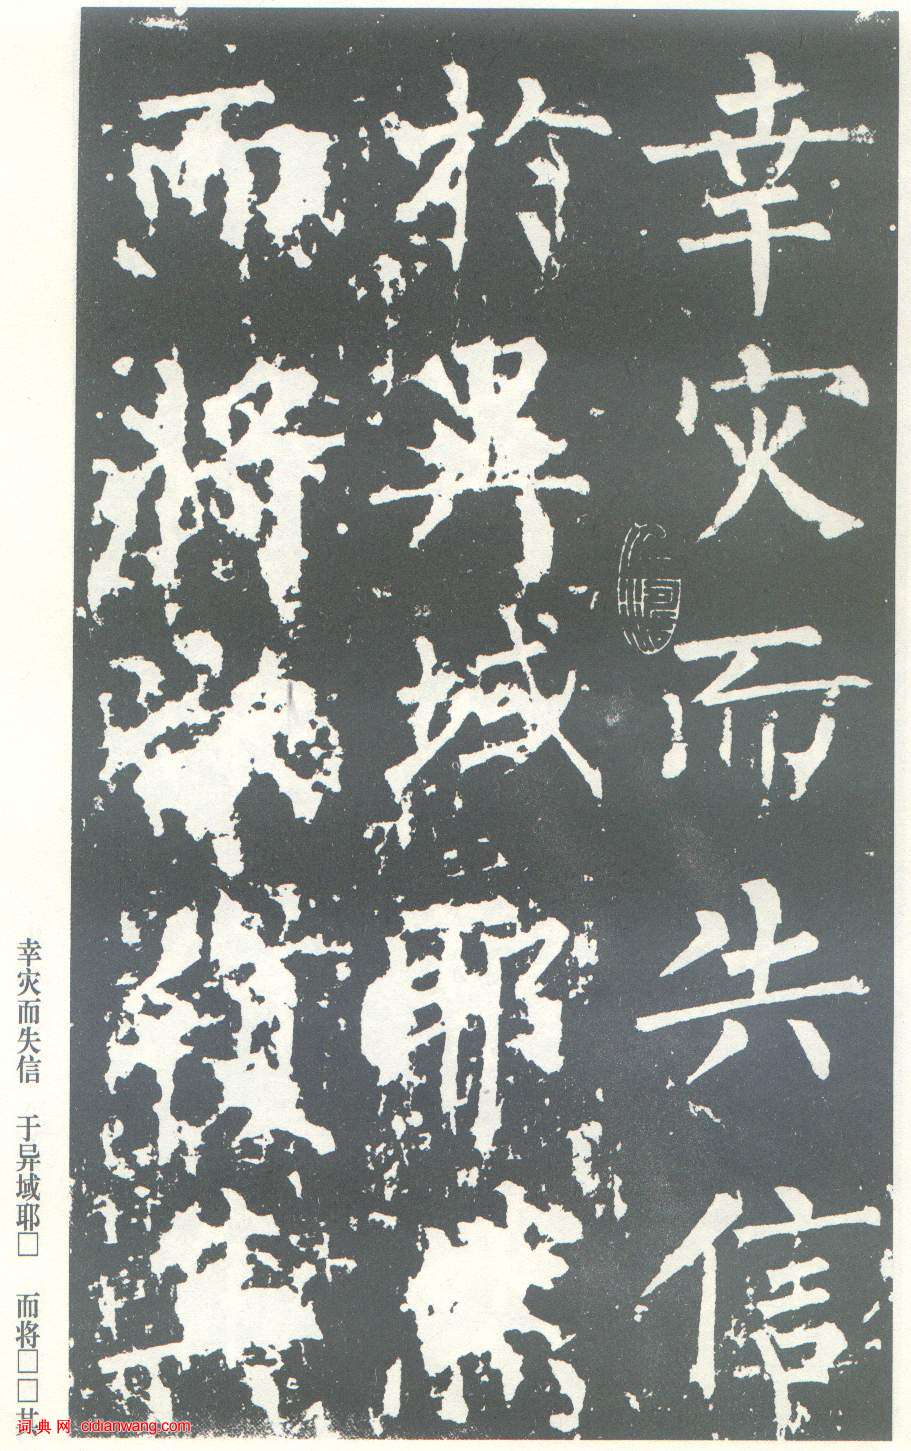 幸灾而失信
於異域耶
而將
幸灾而失信 于异域耶□ 而将□□其
词典网 cidianwang.com